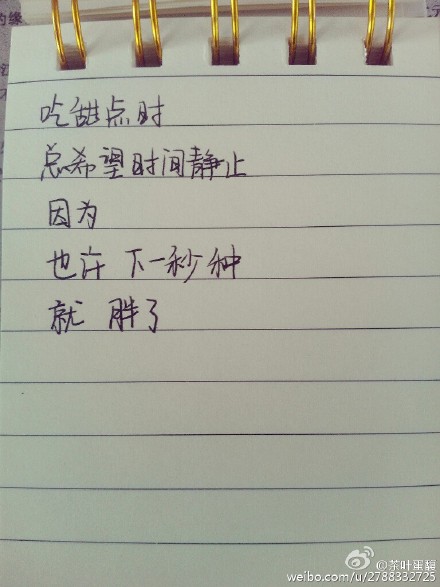 吃甜点时
总希望时间静止
因为
也许 下一秒种
就 胖了
@茶叶蛋馥
weibo.com/u/2788332725